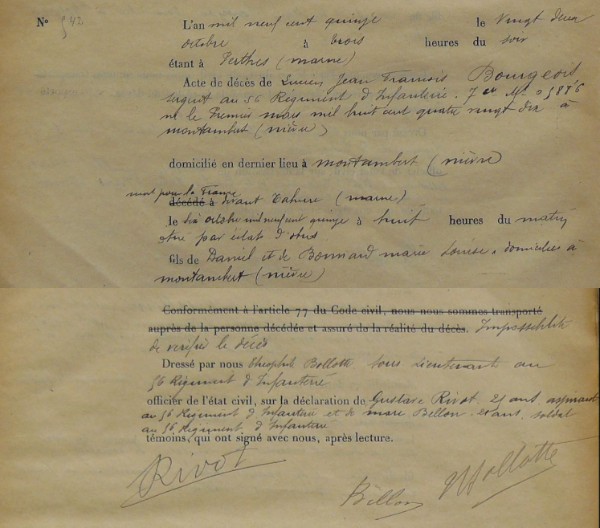 N° 542 L'an mil neuf cent quinze le Vingt deux
octobre à trois heures du soir
étant à Perthes (marne)
Acte de décès de Lucien Jean François Bourgeois
sergent au 56 Régiment d'Infanterie. 7 Cie Mle 5876
né le Premier mars mil huit cent quatre vingt dix à
montambert (nièvre)
domicilié en dernier lieu à montambert (nièvre)
mort pour la France
décédé à Tahure (marne)
le six octobre mil neuf cent quinze à huit heures du matin
par éclat d'obus
fils de Daniel et de Bonnard marie Louise, domiciliés à
montambert (nièvre)
Conformément à l'article 77 du Code civil, nous nous sommes transporté
auprès de la personne décédée et assuré de la réalité du décès. Impossibilité
de verifier le décès
Dressé par nous théophile Bollotte sous lieutenant au
56 Régiment d'Infanterie
officier de l'état civil, sur la déclaration de Gustave Rivot, 21 ans, aspirant
au 56 Régiment d'Infanterie et de marc Bellon, 20 ans, soldat
au 56 Régiment d'Infanterie
témoins, qui ont signé avec nous, après lecture.
Rivot
Bellon Bollotte